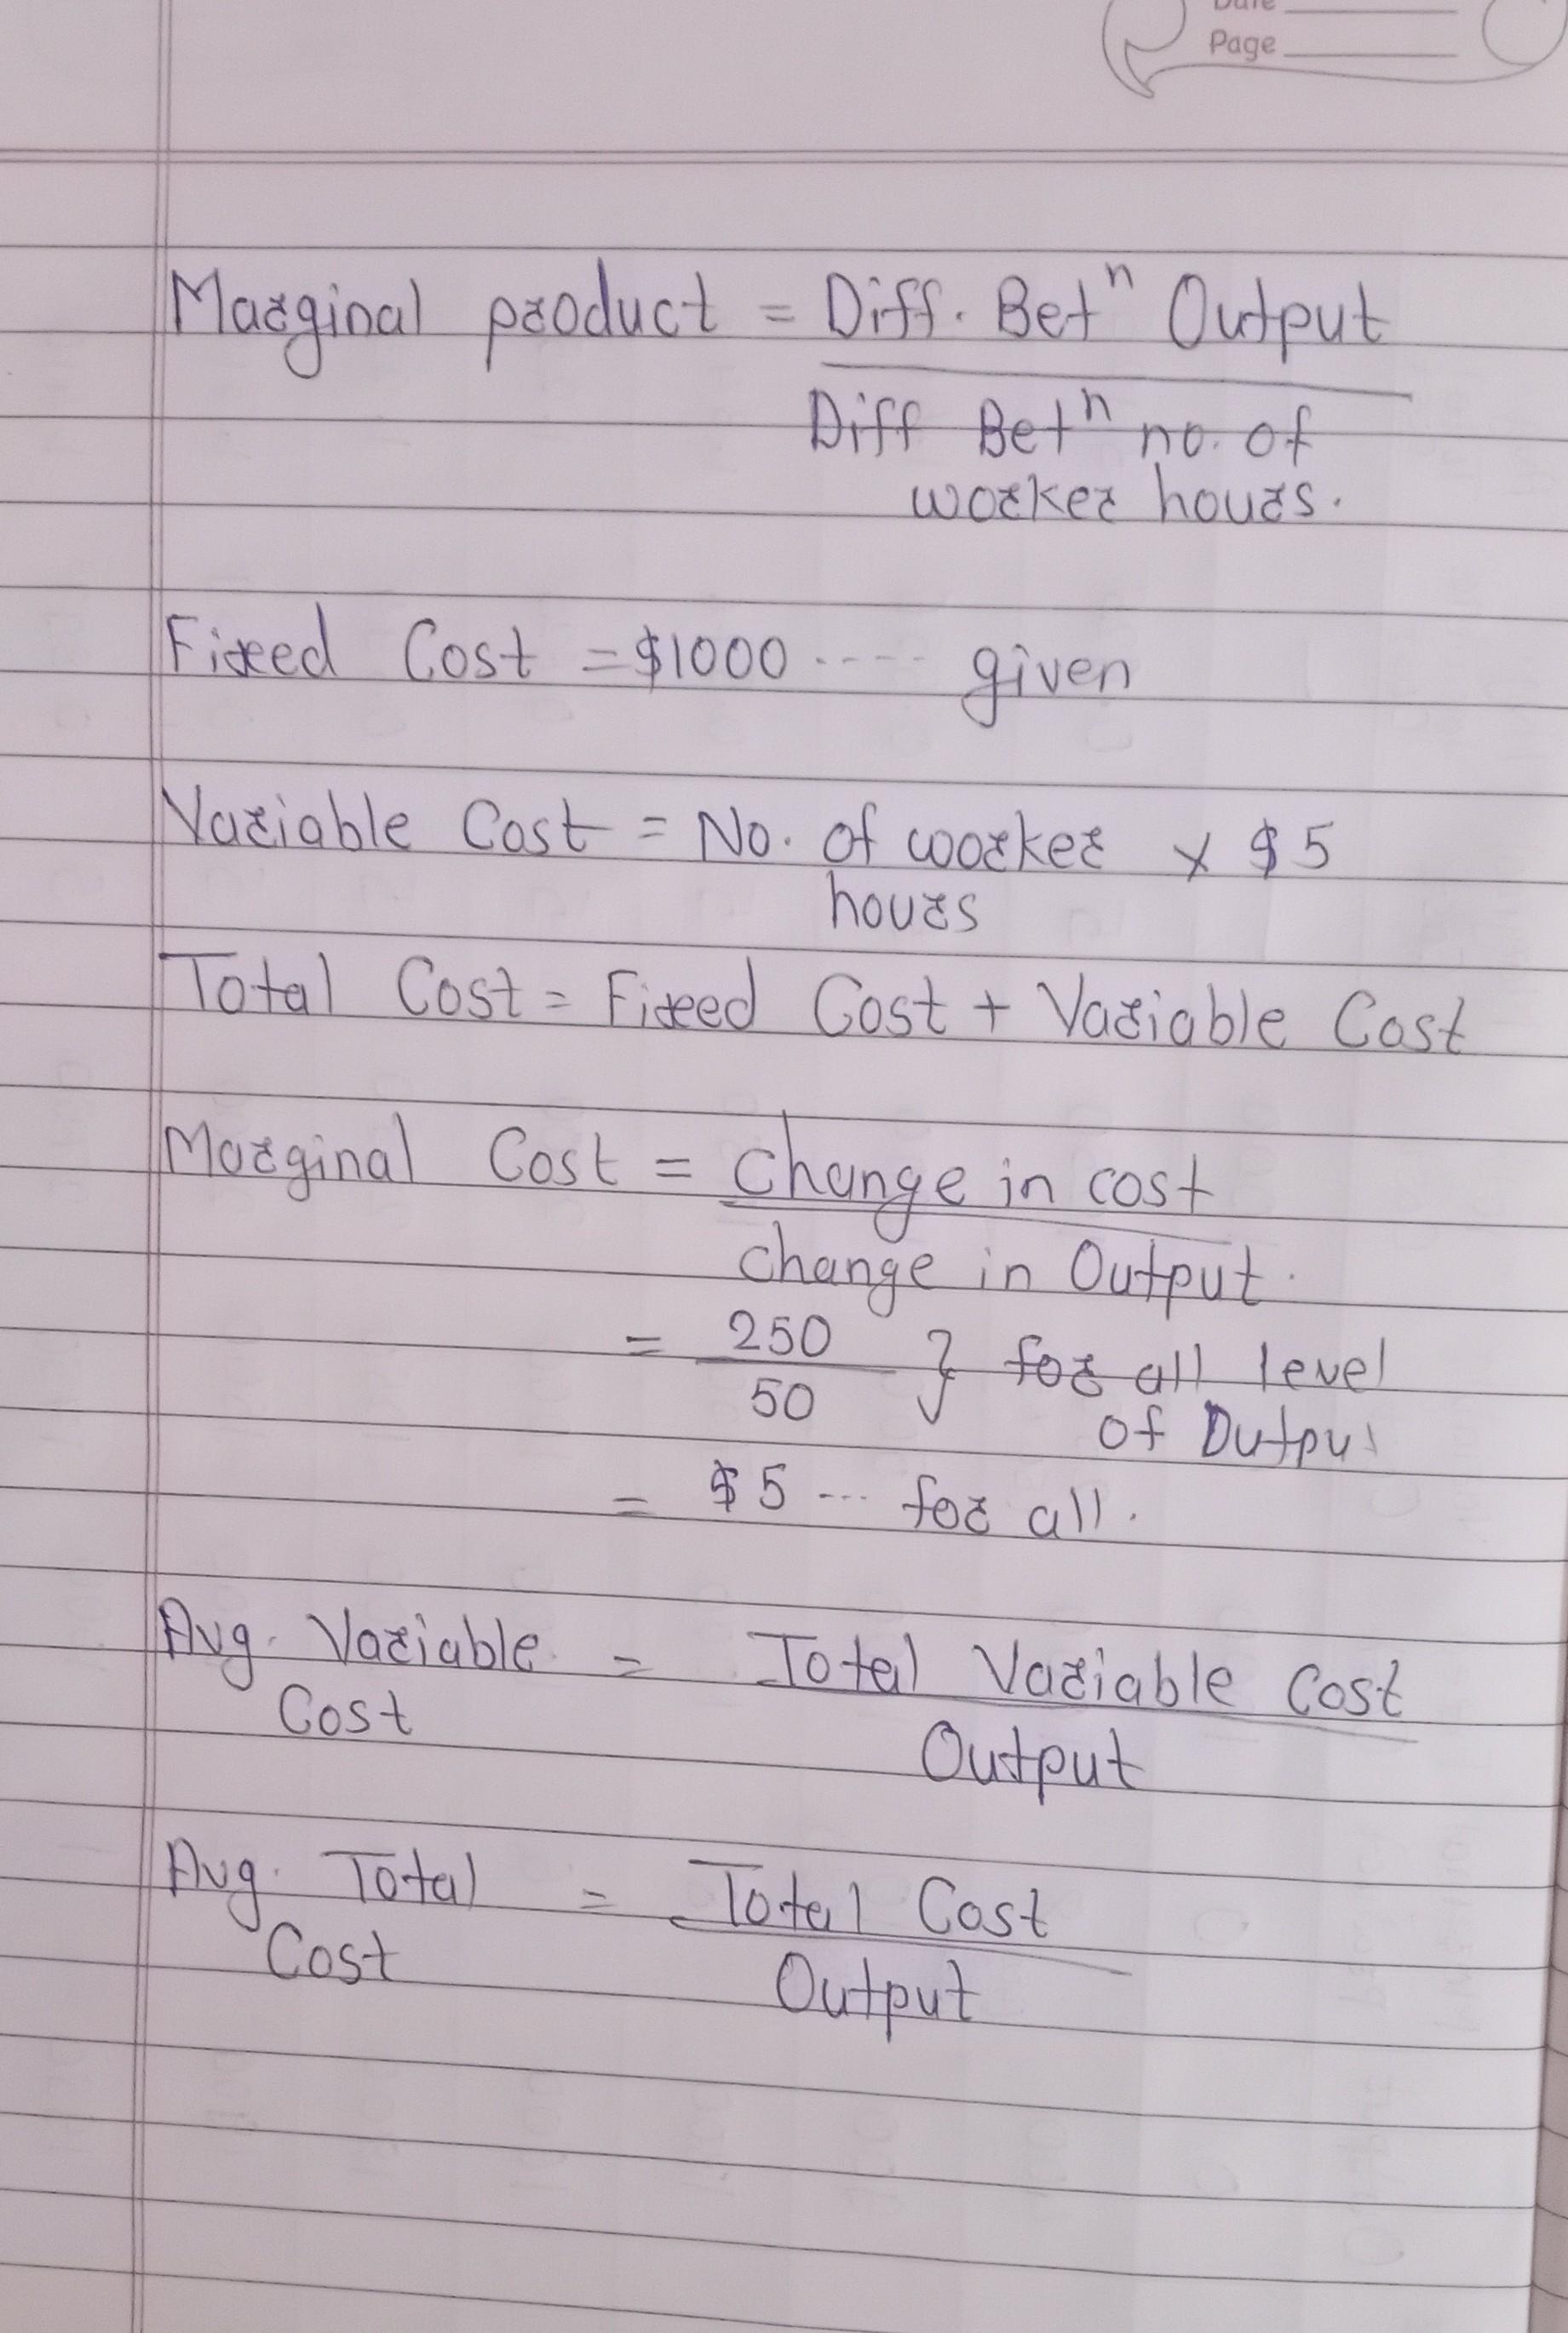 Date
Page
Marginal product = Diff. Betⁿ Output
Diff Betⁿ no. of
worker hours.
Fixed Cost = $1000 ---- given
Variable Cost = No. of worker × $5
hours
Total Cost = Fixed Cost + Variable Cost
Marginal Cost = Change in cost
change in Output.
= 250 } for all level
50
of Outpu
= $5 --- for all.
Avg. Variable = Total Variable Cost
Cost
Output
Avg. Total = Total Cost
Cost
Output